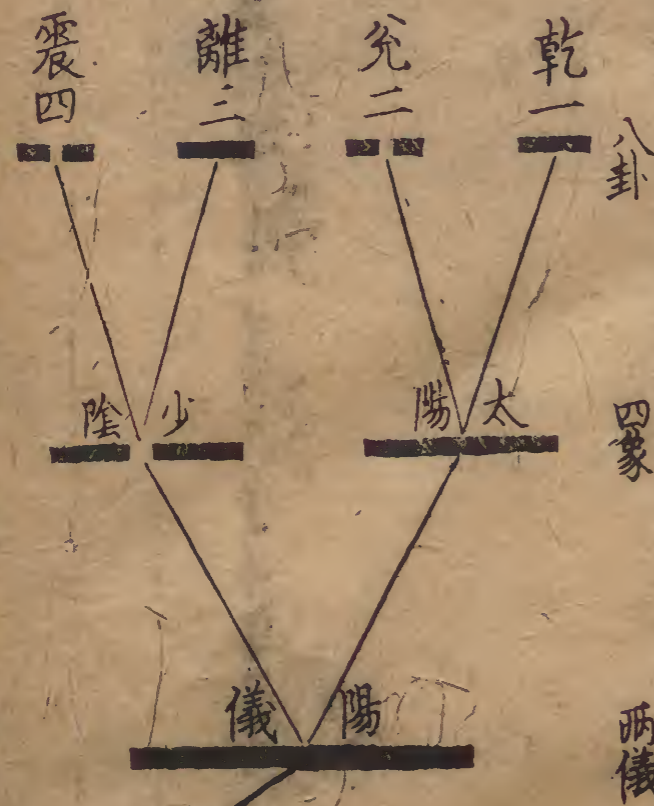 八卦
乾一
兌二
離三
震四
四象
太陽
少陰
兩儀
陽儀